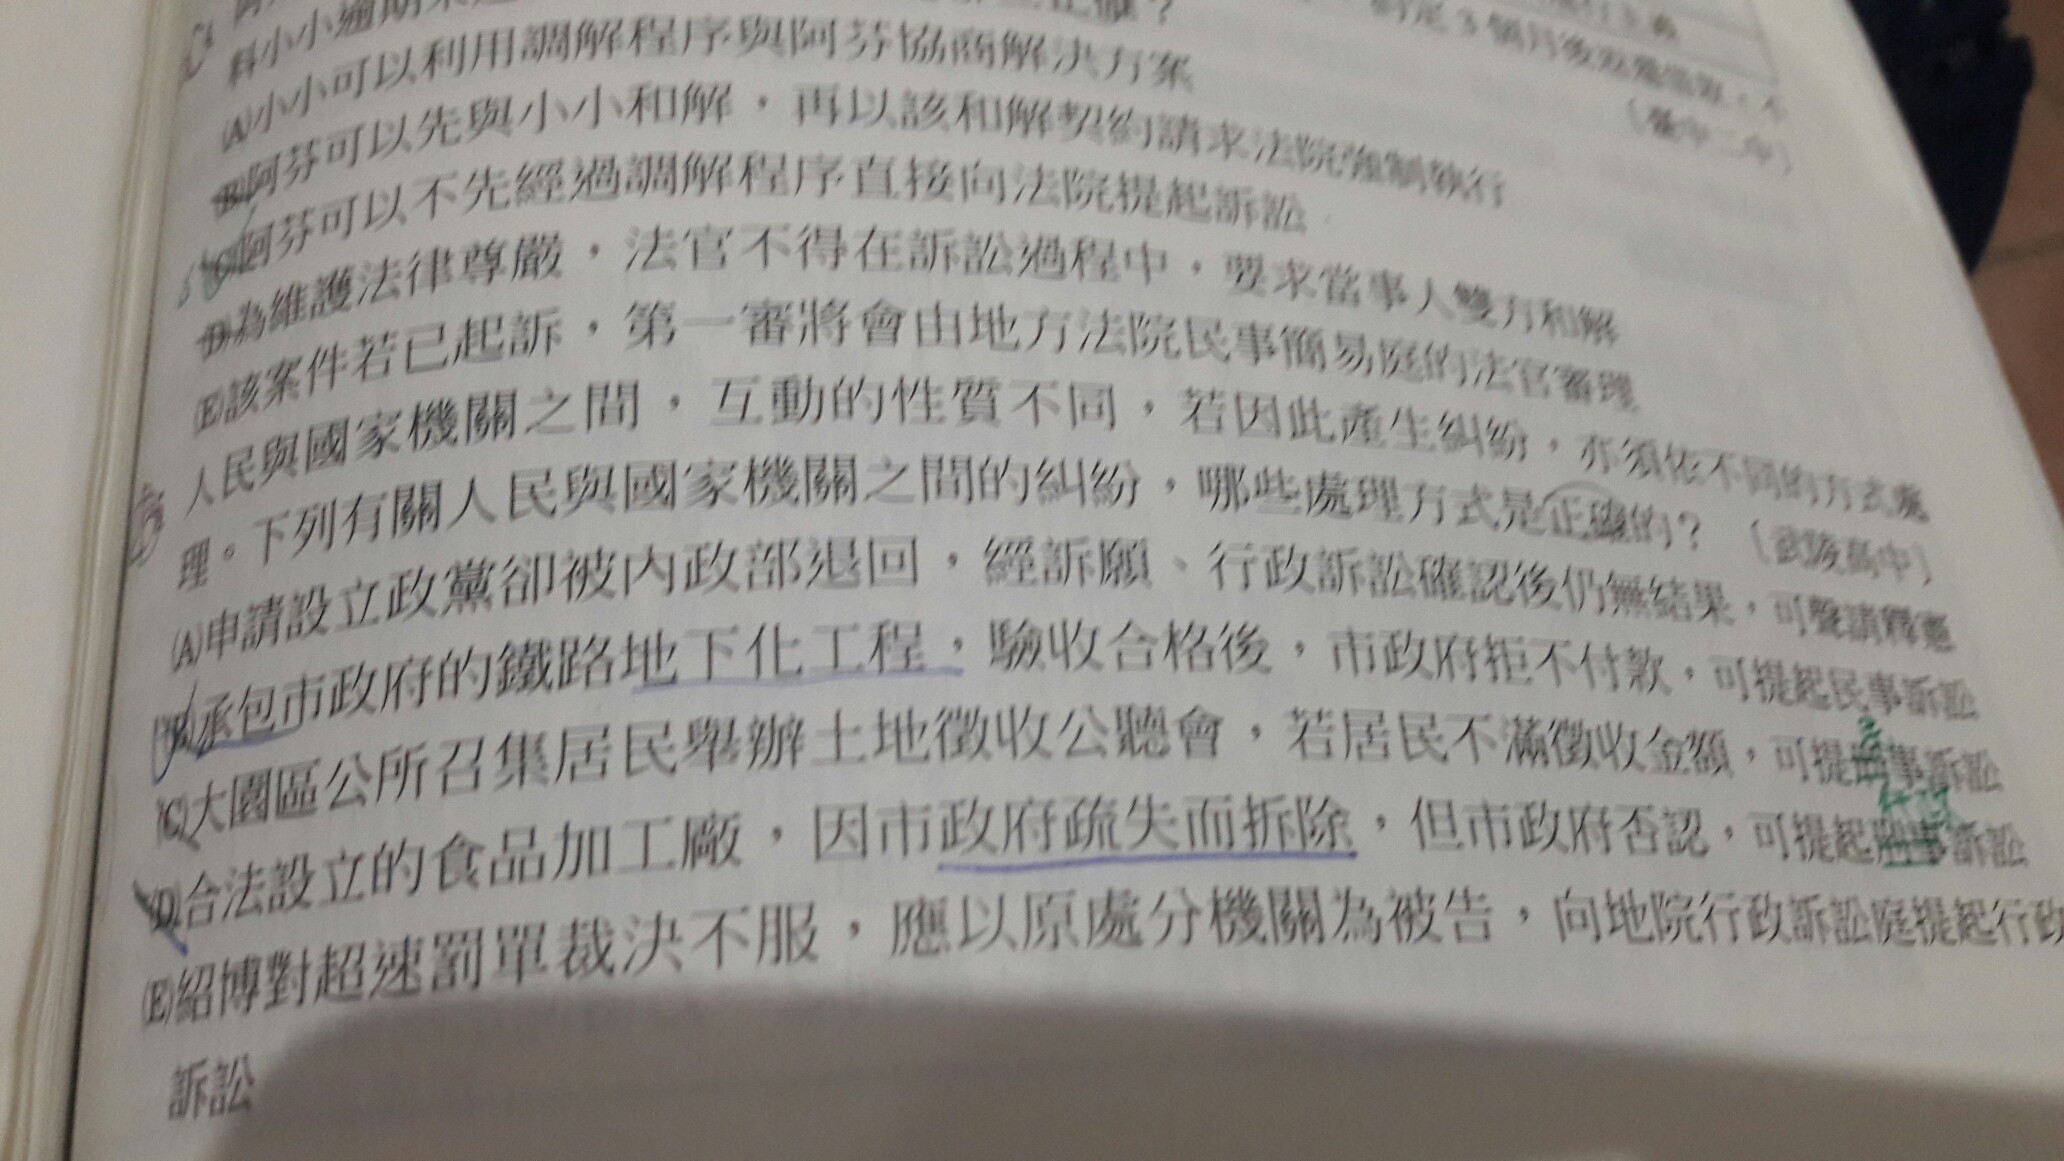 料小小逾期未還
判定3個月後必須搬遷，不
(A)小小可以利用調解程序與阿芬協商解決方案
(B)阿芬可以先與小小和解，再以該和解契約請求法院強制執行
(C)阿芬可以不先經過調解程序直接向法院提起訴訟
(D)為維護法律尊嚴，法官不得在訴訟過程中，要求當事人雙方和解
(E)該案件若已起訴，第一審將會由地方法院民事簡易庭的法官審理
人民與國家機關之間，互動的性質不同，若因此產生糾紛，亦須依不同的方式處
理。下列有關人民與國家機關之間的糾紛，哪些處理方式是正確的？〔武陵高中〕
(A)申請設立政黨卻被內政部退回，經訴願、行政訴訟確認後仍無結果，可聲請釋憲
(B)承包市政府的鐵路地下化工程，驗收合格後，市政府拒不付款，可提起民事訴訟
(C)大園區公所召集居民舉辦土地徵收公聽會，若居民不滿徵收金額，可提事訴訟
(D)合法設立的食品加工廠，因市政府疏失而拆除，但市政府否認，可提起刑事訴訟
(E)紹博對超速罰單裁決不服，應以原處分機關為被告，向地院行政訴訟庭提起行政
訴訟